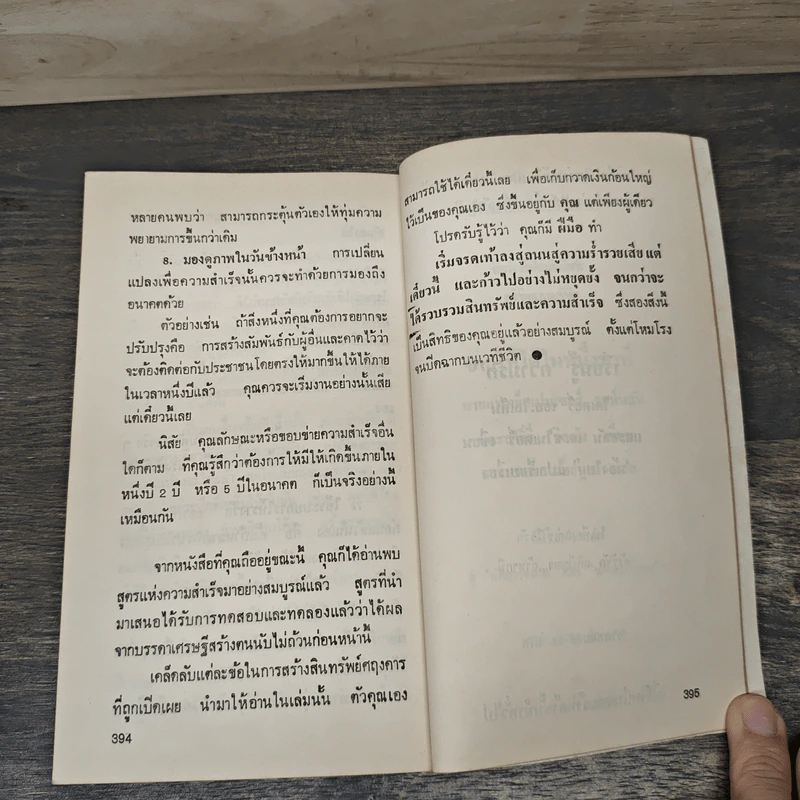 หลายคนพบว่า สามารถกระตุ้นตัวเองให้ทุ่มความ
พยายามการขึ้นกว่าเดิม
8. มองดูภาพในวันข้างหน้า การเปลี่ยน
แปลงเพื่อความสำเร็จนั้นควรจะทำด้วยการมองถึง
อนาคตด้วย
ตัวอย่างเช่น ถ้าสิ่งหนึ่งที่คุณต้องการอยากจะ
ปรับปรุงคือ การสร้างสัมพันธ์กับผู้อื่นและคาดไว้ว่า
จะต้องติดต่อกับประชาชนโดยตรงให้มากขึ้นให้ได้ภาย
ในเวลาหนึ่งปีแล้ว คุณควรจะเริ่มงานอย่างนั้นเสีย
แต่เดี๋ยวนี้เลย
นิสัย คุณลักษณะหรือขอบข่ายความสำเร็จอื่น
ใดก็ตาม ที่คุณรู้สึกว่าต้องการให้มีให้เกิดขึ้นภายใน
หนึ่งปี 2 ปี หรือ 5 ปีในอนาคต ก็เป็นจริงอย่างนี้
เหมือนกัน
จากหนังสือที่คุณถืออยู่ขณะนี้ คุณก็ได้อ่านพบ
สูตรแห่งความสำเร็จมาอย่างสมบูรณ์แล้ว สูตรที่นำ
มาเสนอได้รับการทดสอบและทดลองแล้วว่าได้ผล
จากบรรดาเศรษฐีสร้างตนนับไม่ถ้วนก่อนหน้านี้
เคล็ดลับแต่ละข้อในการสร้างสินทรัพย์ศฤงคาร
ที่ถูกเปิดเผย นำมาให้อ่านในเล่มนั้น ตัวคุณเอง
394
สามารถใช้ได้เดี๋ยวนี้เลย เพื่อเก็บกวาดเงินก้อนใหญ่
ไว้เป็นของคุณเอง ซึ่งขึ้นอยู่กับ คุณ แต่เพียงผู้เดียว
โปรดรับรู้ไว้ว่า คุณก็มี ฝีมือ ทำ
เริ่มจรดเท้าลงสู่ถนนสู่ความร่ำรวยเสียแต่
เดี๋ยวนี้ และก้าวไปอย่างไม่หยุดยั้ง จนกว่าจะ
ได้รวบรวมสินทรัพย์และความสำเร็จ ซึ่งสองสิ่งนี้
เป็นสิทธิของคุณอยู่แล้วอย่างสมบูรณ์ ตั้งแต่โหมโรง
จนปิดฉากบนเวทีชีวิต ●
395